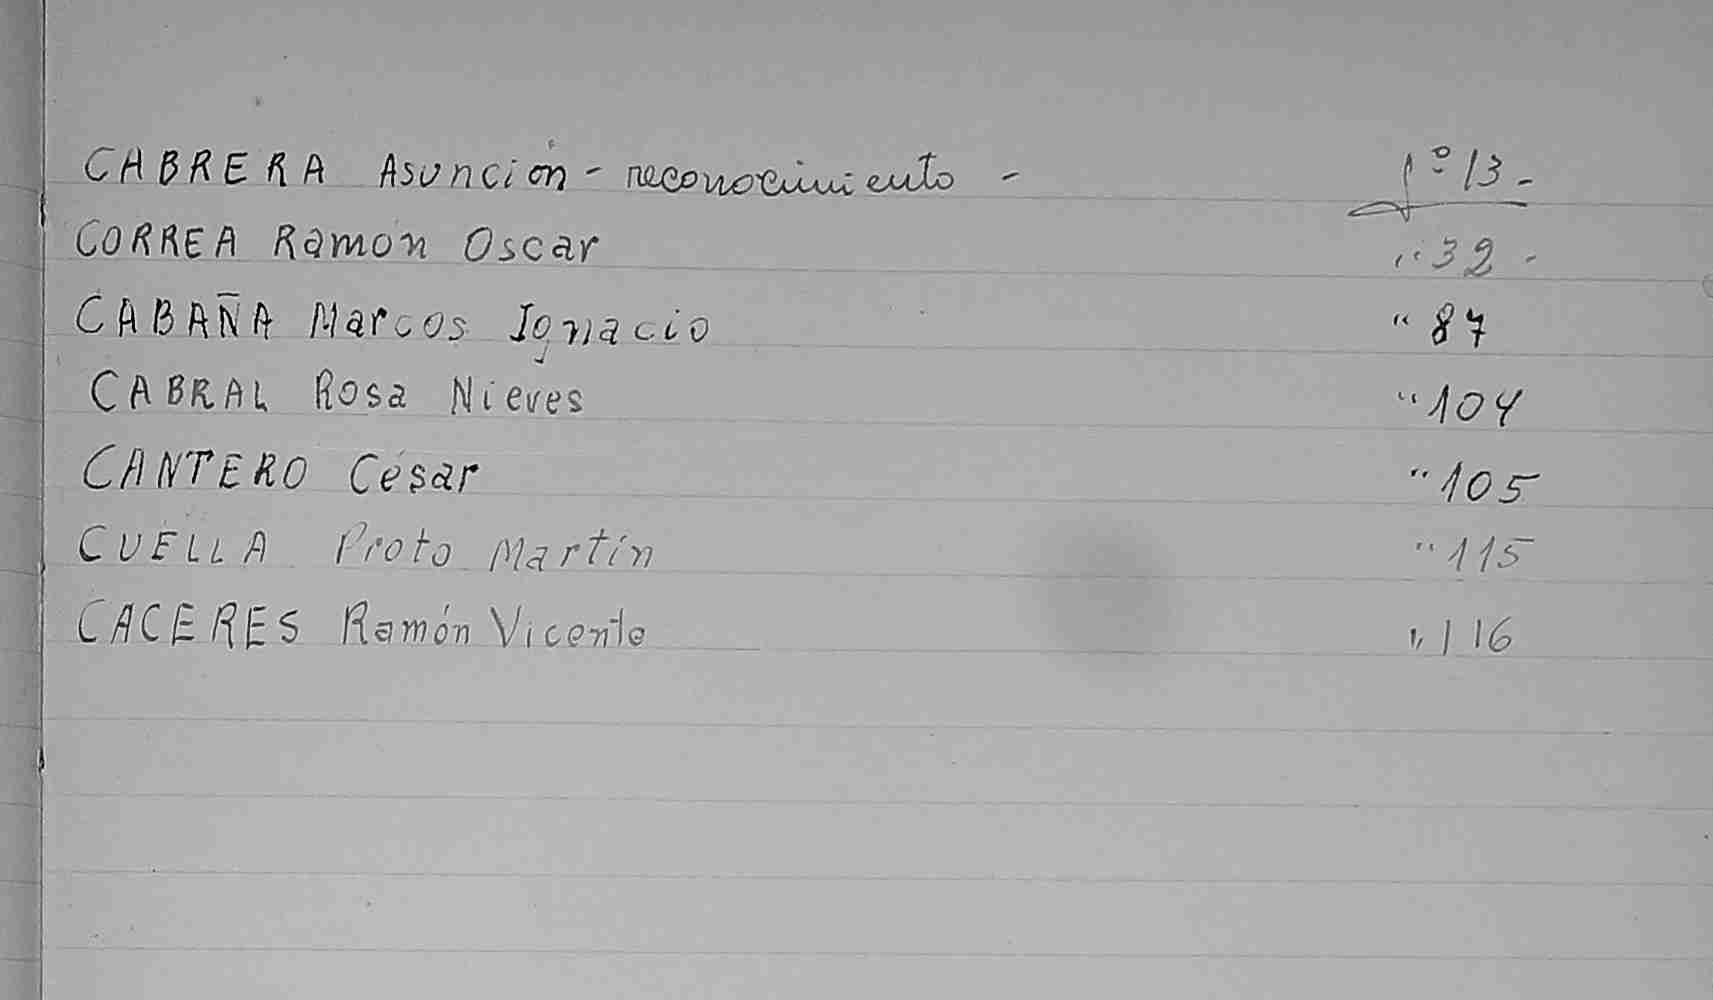 CABRERA Asunción - reconocimiento - fº 13 -
CORREA Ramón Oscar " 32 -
CABAÑA Marcos Ignacio " 87
CABRAL Rosa Nieves " 104
CANTERO César " 105
CUELLA Proto Martín " 115
CACERES Ramón Vicente " 116